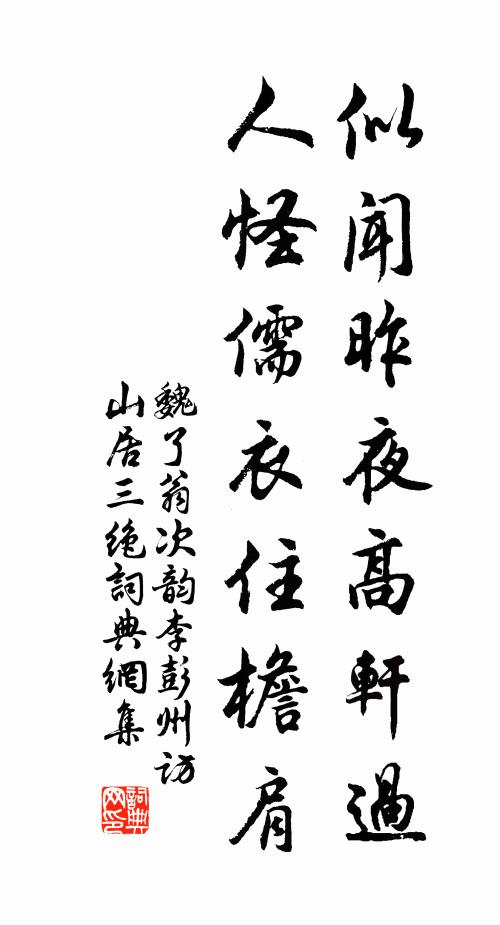 似闻昨夜高軒過
人怪儒衣住檐肩
魏了翁次韵李彭州访
山居三绝詞典網集
詞典网印